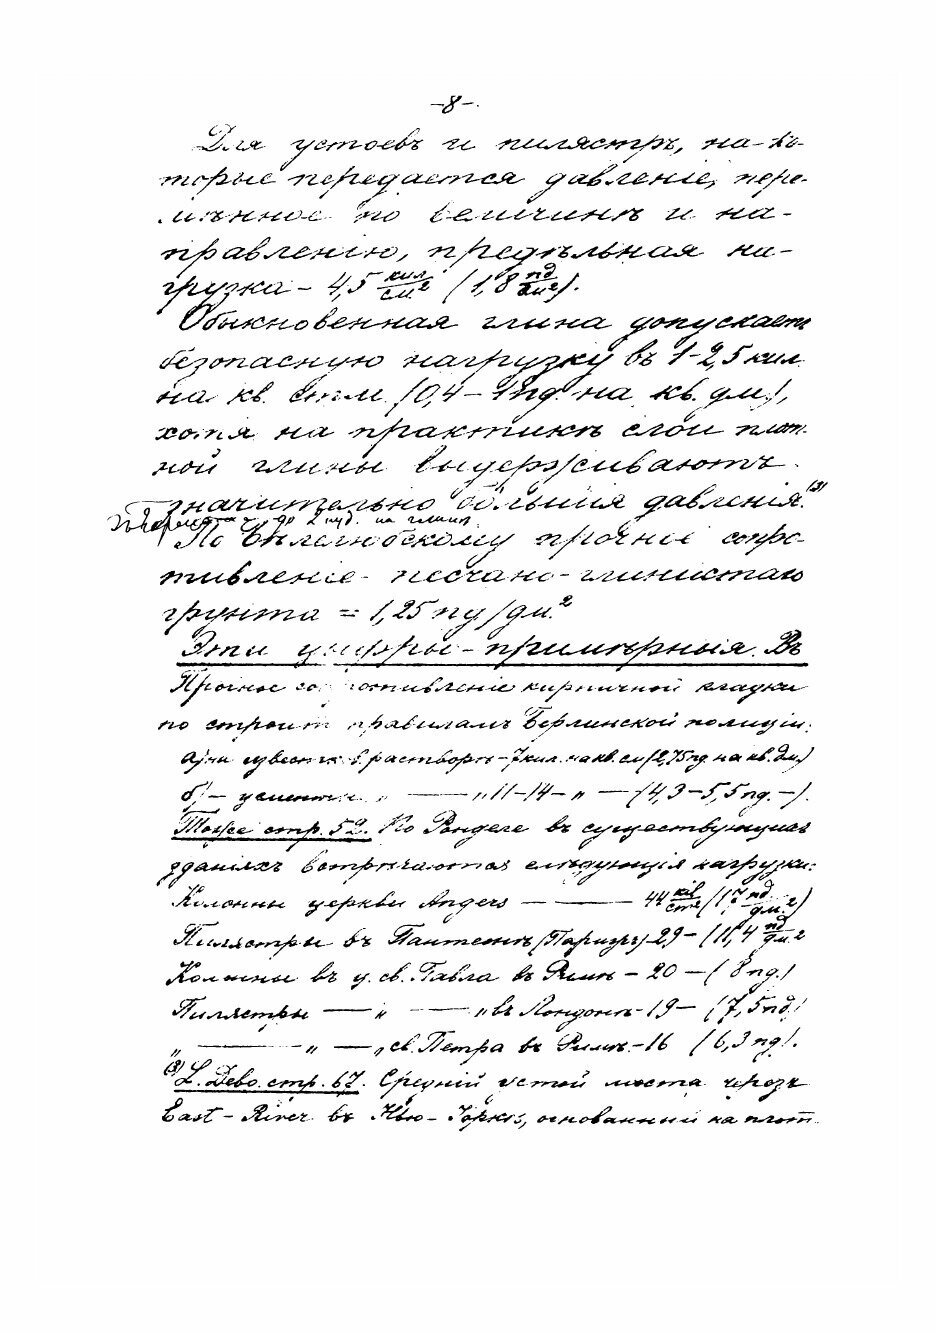 -8-
Для устоевъ и пилястръ, на ко-
торые передается давленіе, пере-
мѣнное по величинѣ и на-
правленію, предѣльная на-
грузка - 4,5 кил/см² (1,8 пд/дм²).
Обыкновенная глина допускаетъ
безопасную нагрузку въ 1-2,5 кил.
на кв. стм. (0,4 - 1 пд на кв. дм.),
хотя на практикѣ слои плот-
ной глины выдерживаютъ
значительно большія давленія. (3)
до 2 пуд. на глин.
По Бѣлелюбскому прочное сопро-
тивленіе песчано-глинистаго
грунта = 1,25 пу/дм.²
Эти цифры - примѣрныя. Въ
Прочное сопротивленіе кирпичной кладки
по строит. правиламъ Берлинской полиціи:
а) на известк. растворѣ - 7 кил. на кв. см (2,75 пд на кв. дм.)
б) - цементн. " —— " 11-14 - " — (4,3-5,5 пд. -).
Тоже стр. 52. По Ронделе въ существующихъ
зданіяхъ встрѣчаются слѣдующія нагрузки:
Колонны церкви Angers — —— 44 кл/ст² (17 пд/дм.²)
Пилястры въ Пантеонѣ (Парижъ) - 29 - (11,4 пд/дм.²
Колонны въ ц. св. Павла въ Римѣ - 20 - (8 пд.)
Пилястры — " — " въ Лондонѣ - 19 - (7,5 пд.)
" —— " — " св. Петра въ Римѣ - 16 (6,3 пд).
(3) L. Дебо. стр. 67. Средній устой моста черезъ
East-River въ Нью-Іоркѣ, основанный на плот-